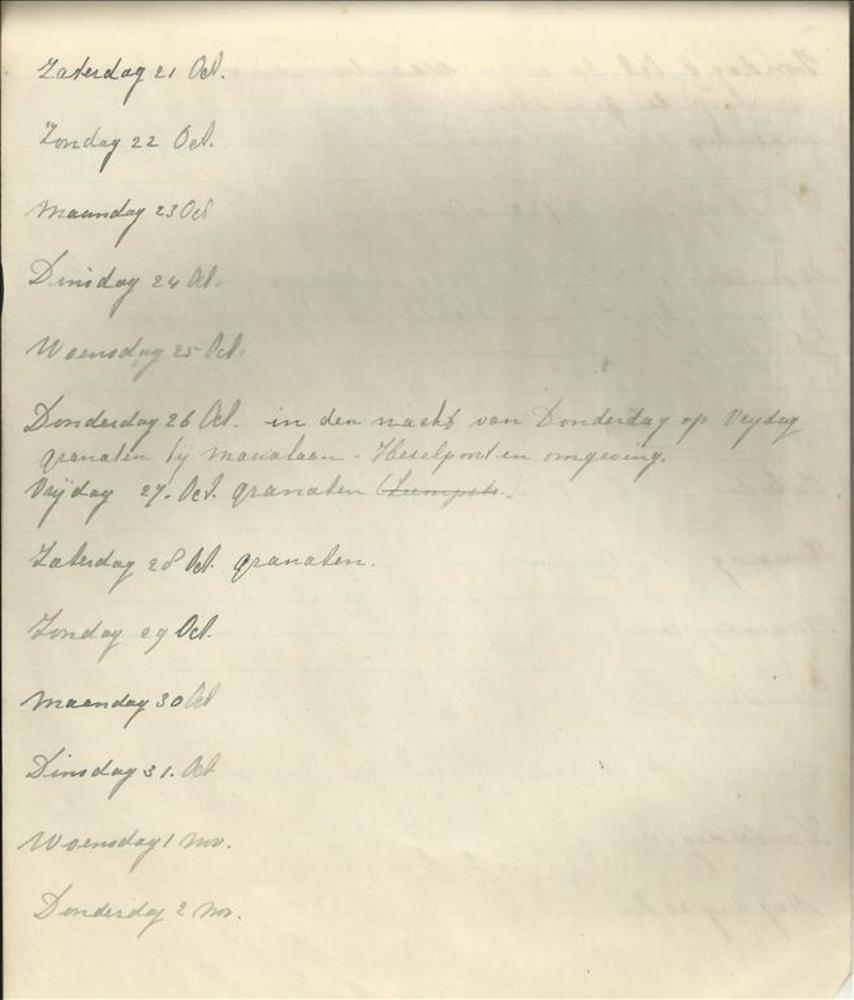 Zaterdag 21 Oct.
Zondag 22 Oct.
Maandag 23 Oct
Dinsdag 24 Oct.
Woensdag 25 Oct.
Donderdag 26 Oct. in den nacht van Donderdag op Vrijdag
granaten bij Marialaan - Heselpoort en omgeving.
Vrijdag 27. Oct. granaten
Zaterdag 28 Oct. granaten.
Zondag 29 Oct.
Maandag 30 Oct
Dinsdag 31. Oct
Woensdag 1 Nov.
Donderdag 2 Nov.